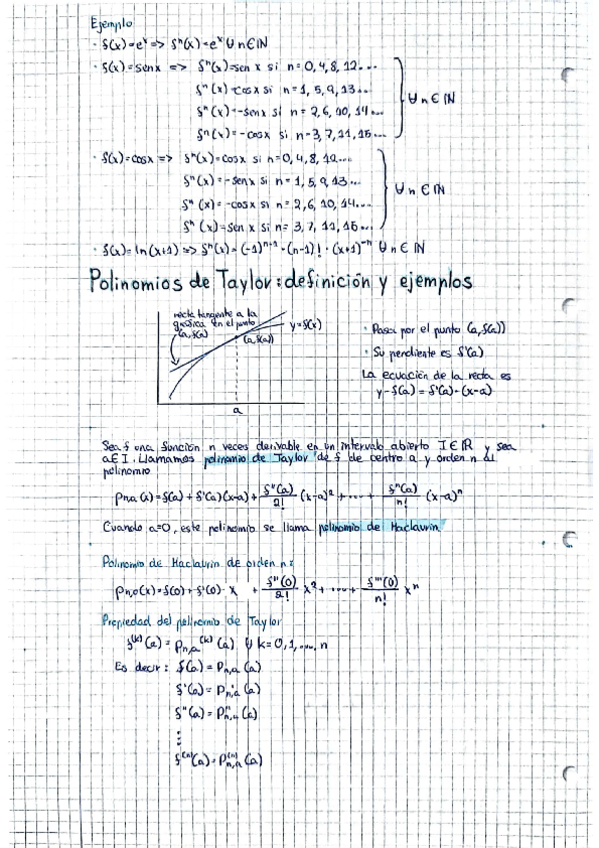 Ejemplo
· f(x)=eˣ => fⁿ(x)=eˣ ∀n∈ℕ
· f(x)=senx => fⁿ(x)=sen x si n=0,4,8,12...
fⁿ(x)=cosx si n=1,5,9,13...
fⁿ(x)=-senx si n=2,6,10,14...
fⁿ(x)=-cosx si n=3,7,11,15...
∀n∈ℕ
· f(x)=cosx => fⁿ(x)=cosx si n=0,4,8,12...
fⁿ(x)=-senx si n=1,5,9,13...
fⁿ(x)=-cosx si n=2,6,10,14...
fⁿ(x)=senx si n=3,7,11,15...
∀n∈ℕ
· f(x)=ln(x+1) => fⁿ(x)=(-1)ⁿ⁻¹·(n-1)!·(x+1)⁻ⁿ ∀n∈ℕ
Polinomios de Taylor: definición y ejemplos
recta tangente a la
gráfica en el punto
(a,f(a))
y=f(x)
(a,f(a))
a
· Pasa por el punto (a,f(a))
· Su pendiente es f'(a)
La ecuación de la recta es
y-f(a)=f'(a)·(x-a)
Sea f una función n veces derivable en un intervalo abierto I∈ℝ y sea
a∈I. Llamamos polinomio de Taylor de f de centro a y orden n al
polinomio
pn,a(x)=f(a)+f'(a)(x-a)+f''(a)/2! (x-a)²+....+fⁿ(a)/n! (x-a)ⁿ
Cuando a=0, este polinomio se llama polinomio de Maclaurin
Polinomio de Maclaurin de orden n:
pn,0(x)=f(0)+f'(0)·x+f''(0)/2! x²+....+fⁿ(0)/n! xⁿ
Propiedad del polinomio de Taylor
f⁽ᵏ⁾(a)=pn,a⁽ᵏ⁾(a) ∀k=0,1,...,n
Es decir: f(a)=Pn,a(a)
f'(a)=P'n,a(a)
f''(a)=P''n,a(a)
⋮
f⁽ⁿ⁾(a)=P⁽ⁿ⁾n,a(a)